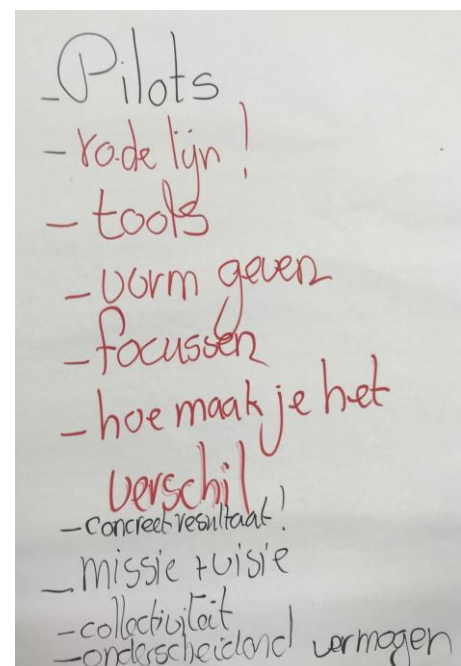 - Pilots
- rode lijn!
- tools
- vorm geven
- focussen
- hoe maak je het
verschil
- concreet resultaat!
- missie + visie
- collectiviteit
- onderscheidend vermogen